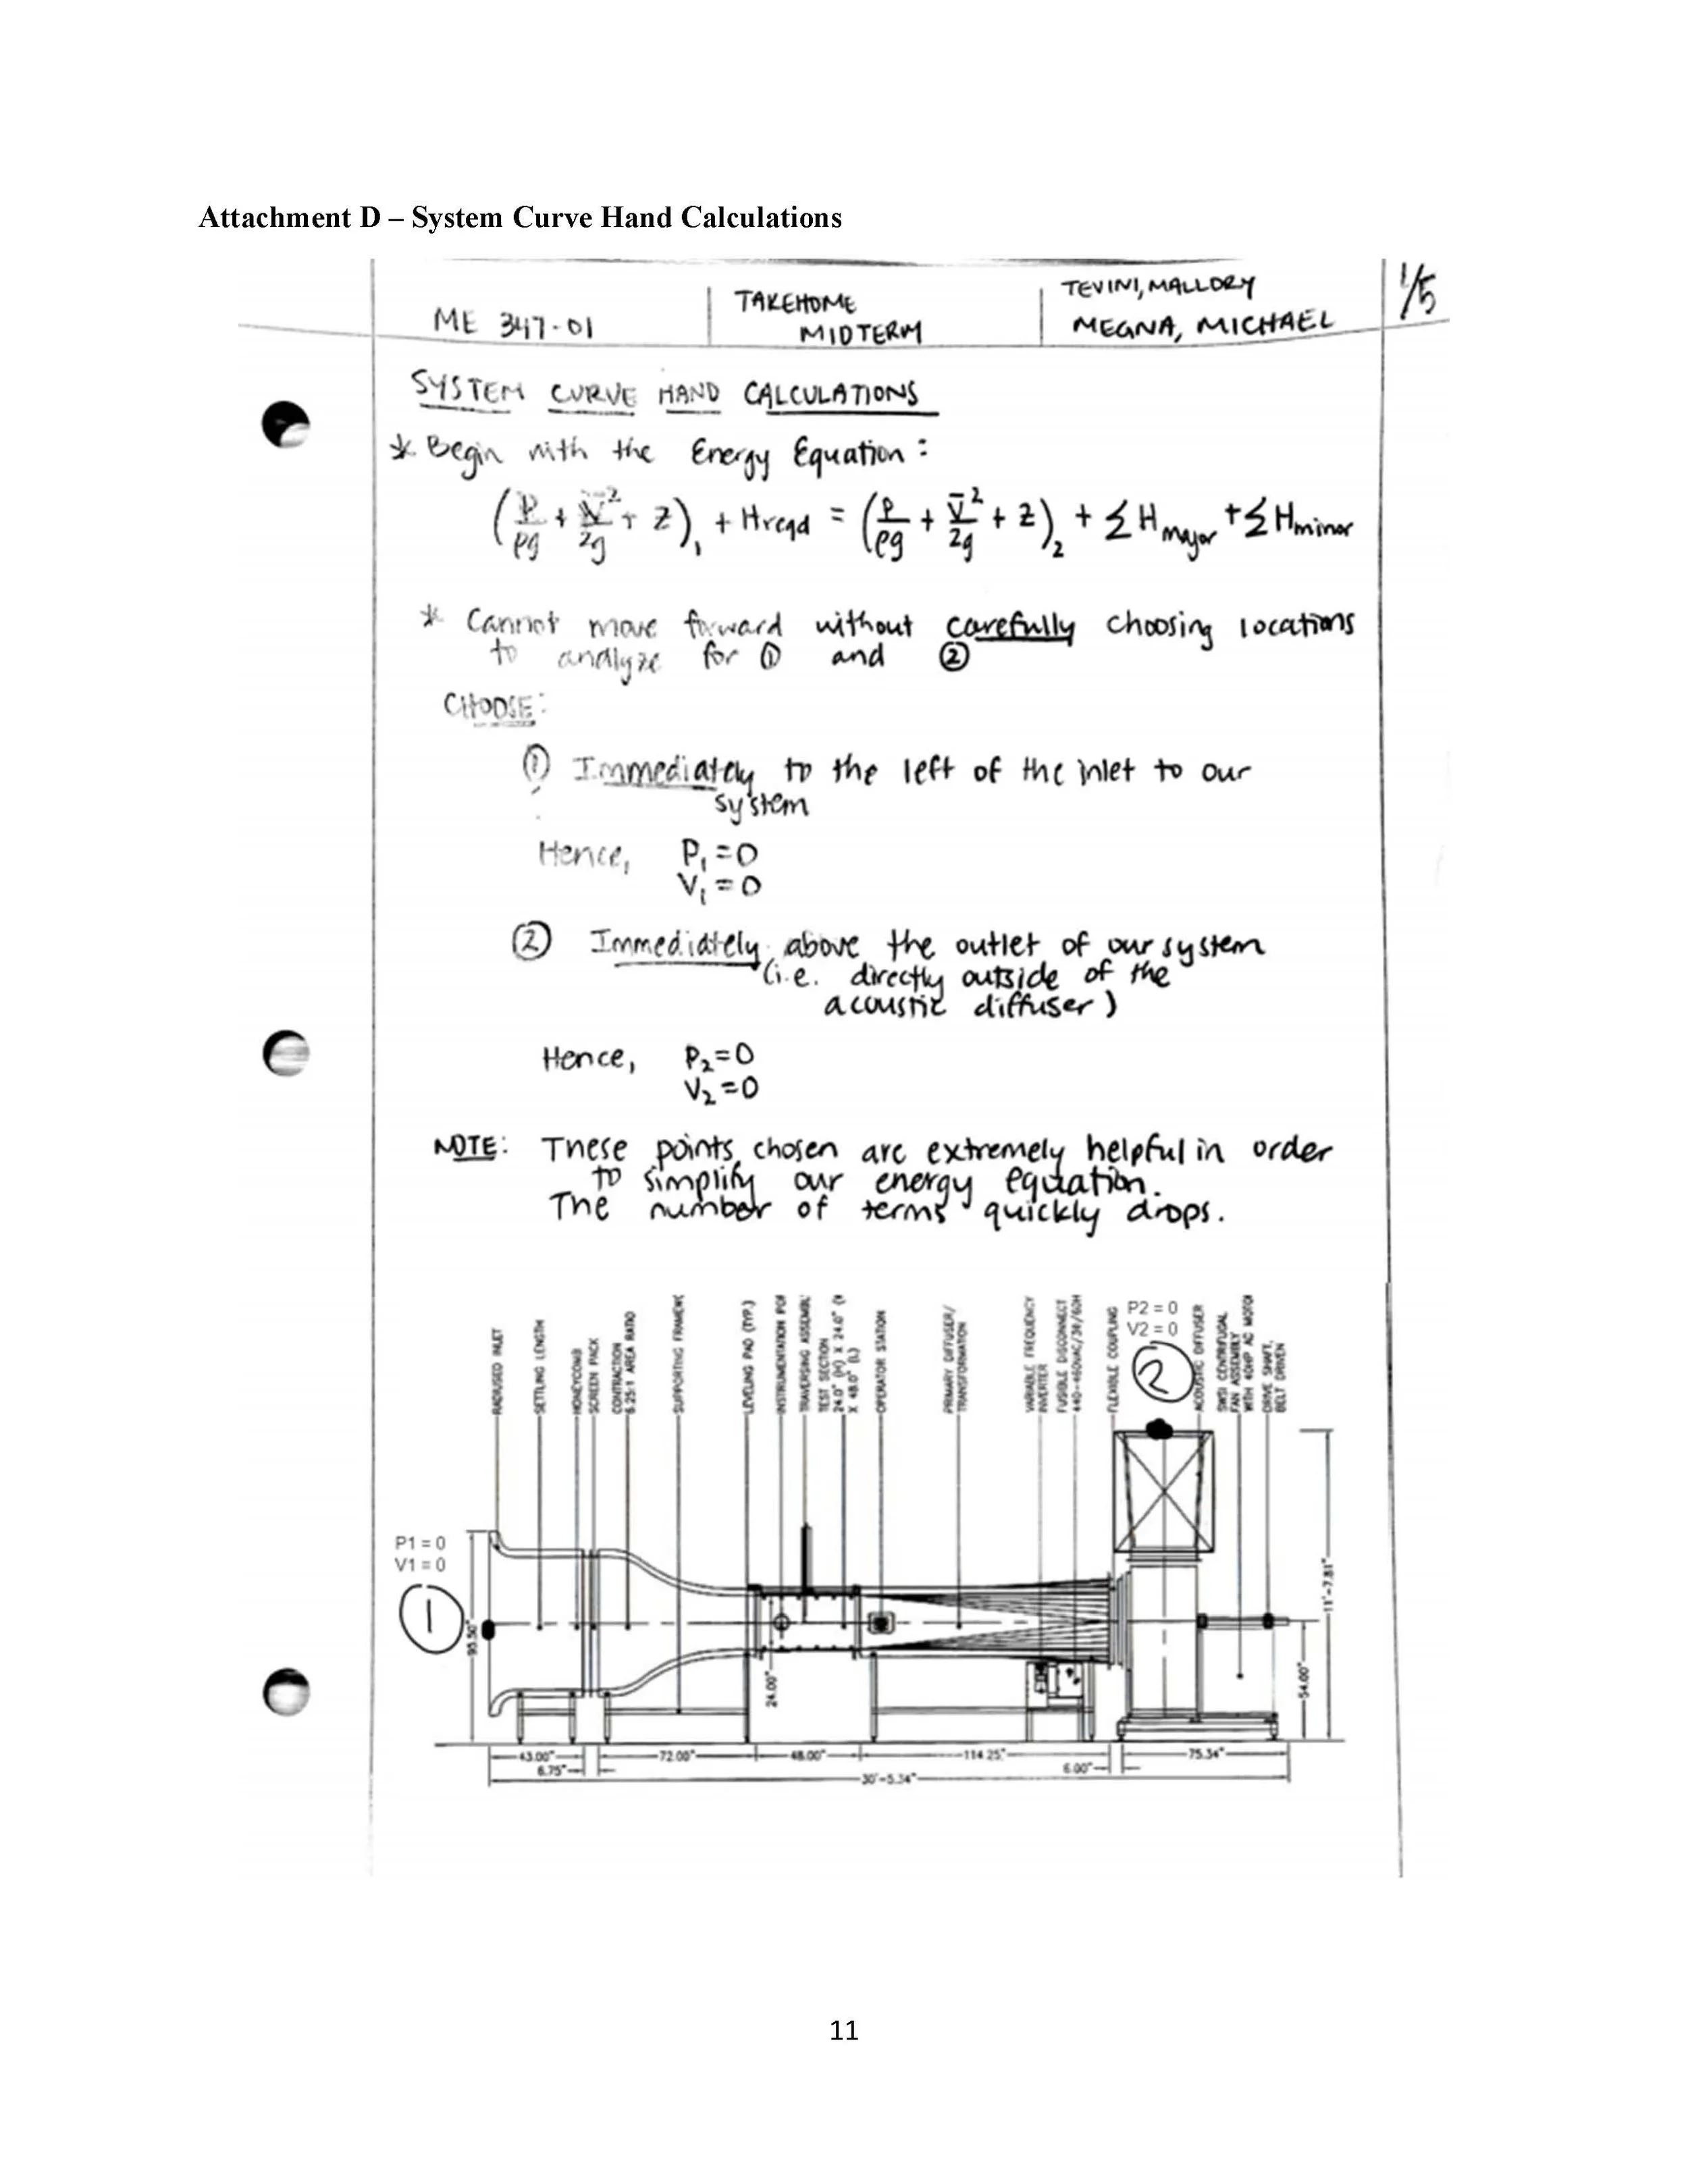 Attachment D – System Curve Hand Calculations
ME 347-01
TAKEHOME
MIDTERM
TEVINI, MALLORY
MEGNA, MICHAEL
1/5
SYSTEM CURVE HAND CALCULATIONS
* Begin with the Energy Equation:
(P/ρg + V̄²/2g + Z)₁ + Hreqd = (P/ρg + V̄²/2g + Z)₂ + ΣHmajor + ΣHminor
* Cannot move forward without carefully choosing locations
to analyze for ① and ②
CHOOSE:
① Immediately to the left of the inlet to our
system
Hence, P₁ = 0
V₁ = 0
② Immediately above the outlet of our system
(i.e. directly outside of the
acoustic diffuser)
Hence, P₂ = 0
V₂ = 0
NOTE: These points chosen are extremely helpful in order
to simplify our energy equation.
The number of terms quickly drops.
RADIUSED INLET
SETTLING LENGTH
HONEYCOMB
SCREEN PACK
CONTRACTION
6.25:1 AREA RATIO
SUPPORTING FRAMEWO
LEVELING PAD (TYP.)
INSTRUMENTATION POR
TRAVERSING ASSEMBL
TEST SECTION
24.0" (H) X 24.0" (W
X 48.0" (L)
OPERATOR STATION
PRIMARY DIFFUSER/
TRANSFORMATION
VARIABLE FREQUENCY
INVERTER
FUSIBLE DISCONNECT
440-460VAC/3Ø/60H
FLEXIBLE COUPLING
P2 = 0
V2 = 0
②
ACOUSTIC DIFFUSER
SWSI CENTRIFUGAL
FAN ASSEMBLY
WITH 40HP AC MOTOR
DRIVE SHAFT,
BELT DRIVEN
P1 = 0
V1 = 0
①
95.50"
24.00"
11'-7.81"
54.00"
43.00"
6.75"
72.00"
48.00"
114.25"
6.00"
75.34"
30'-5.34"
11